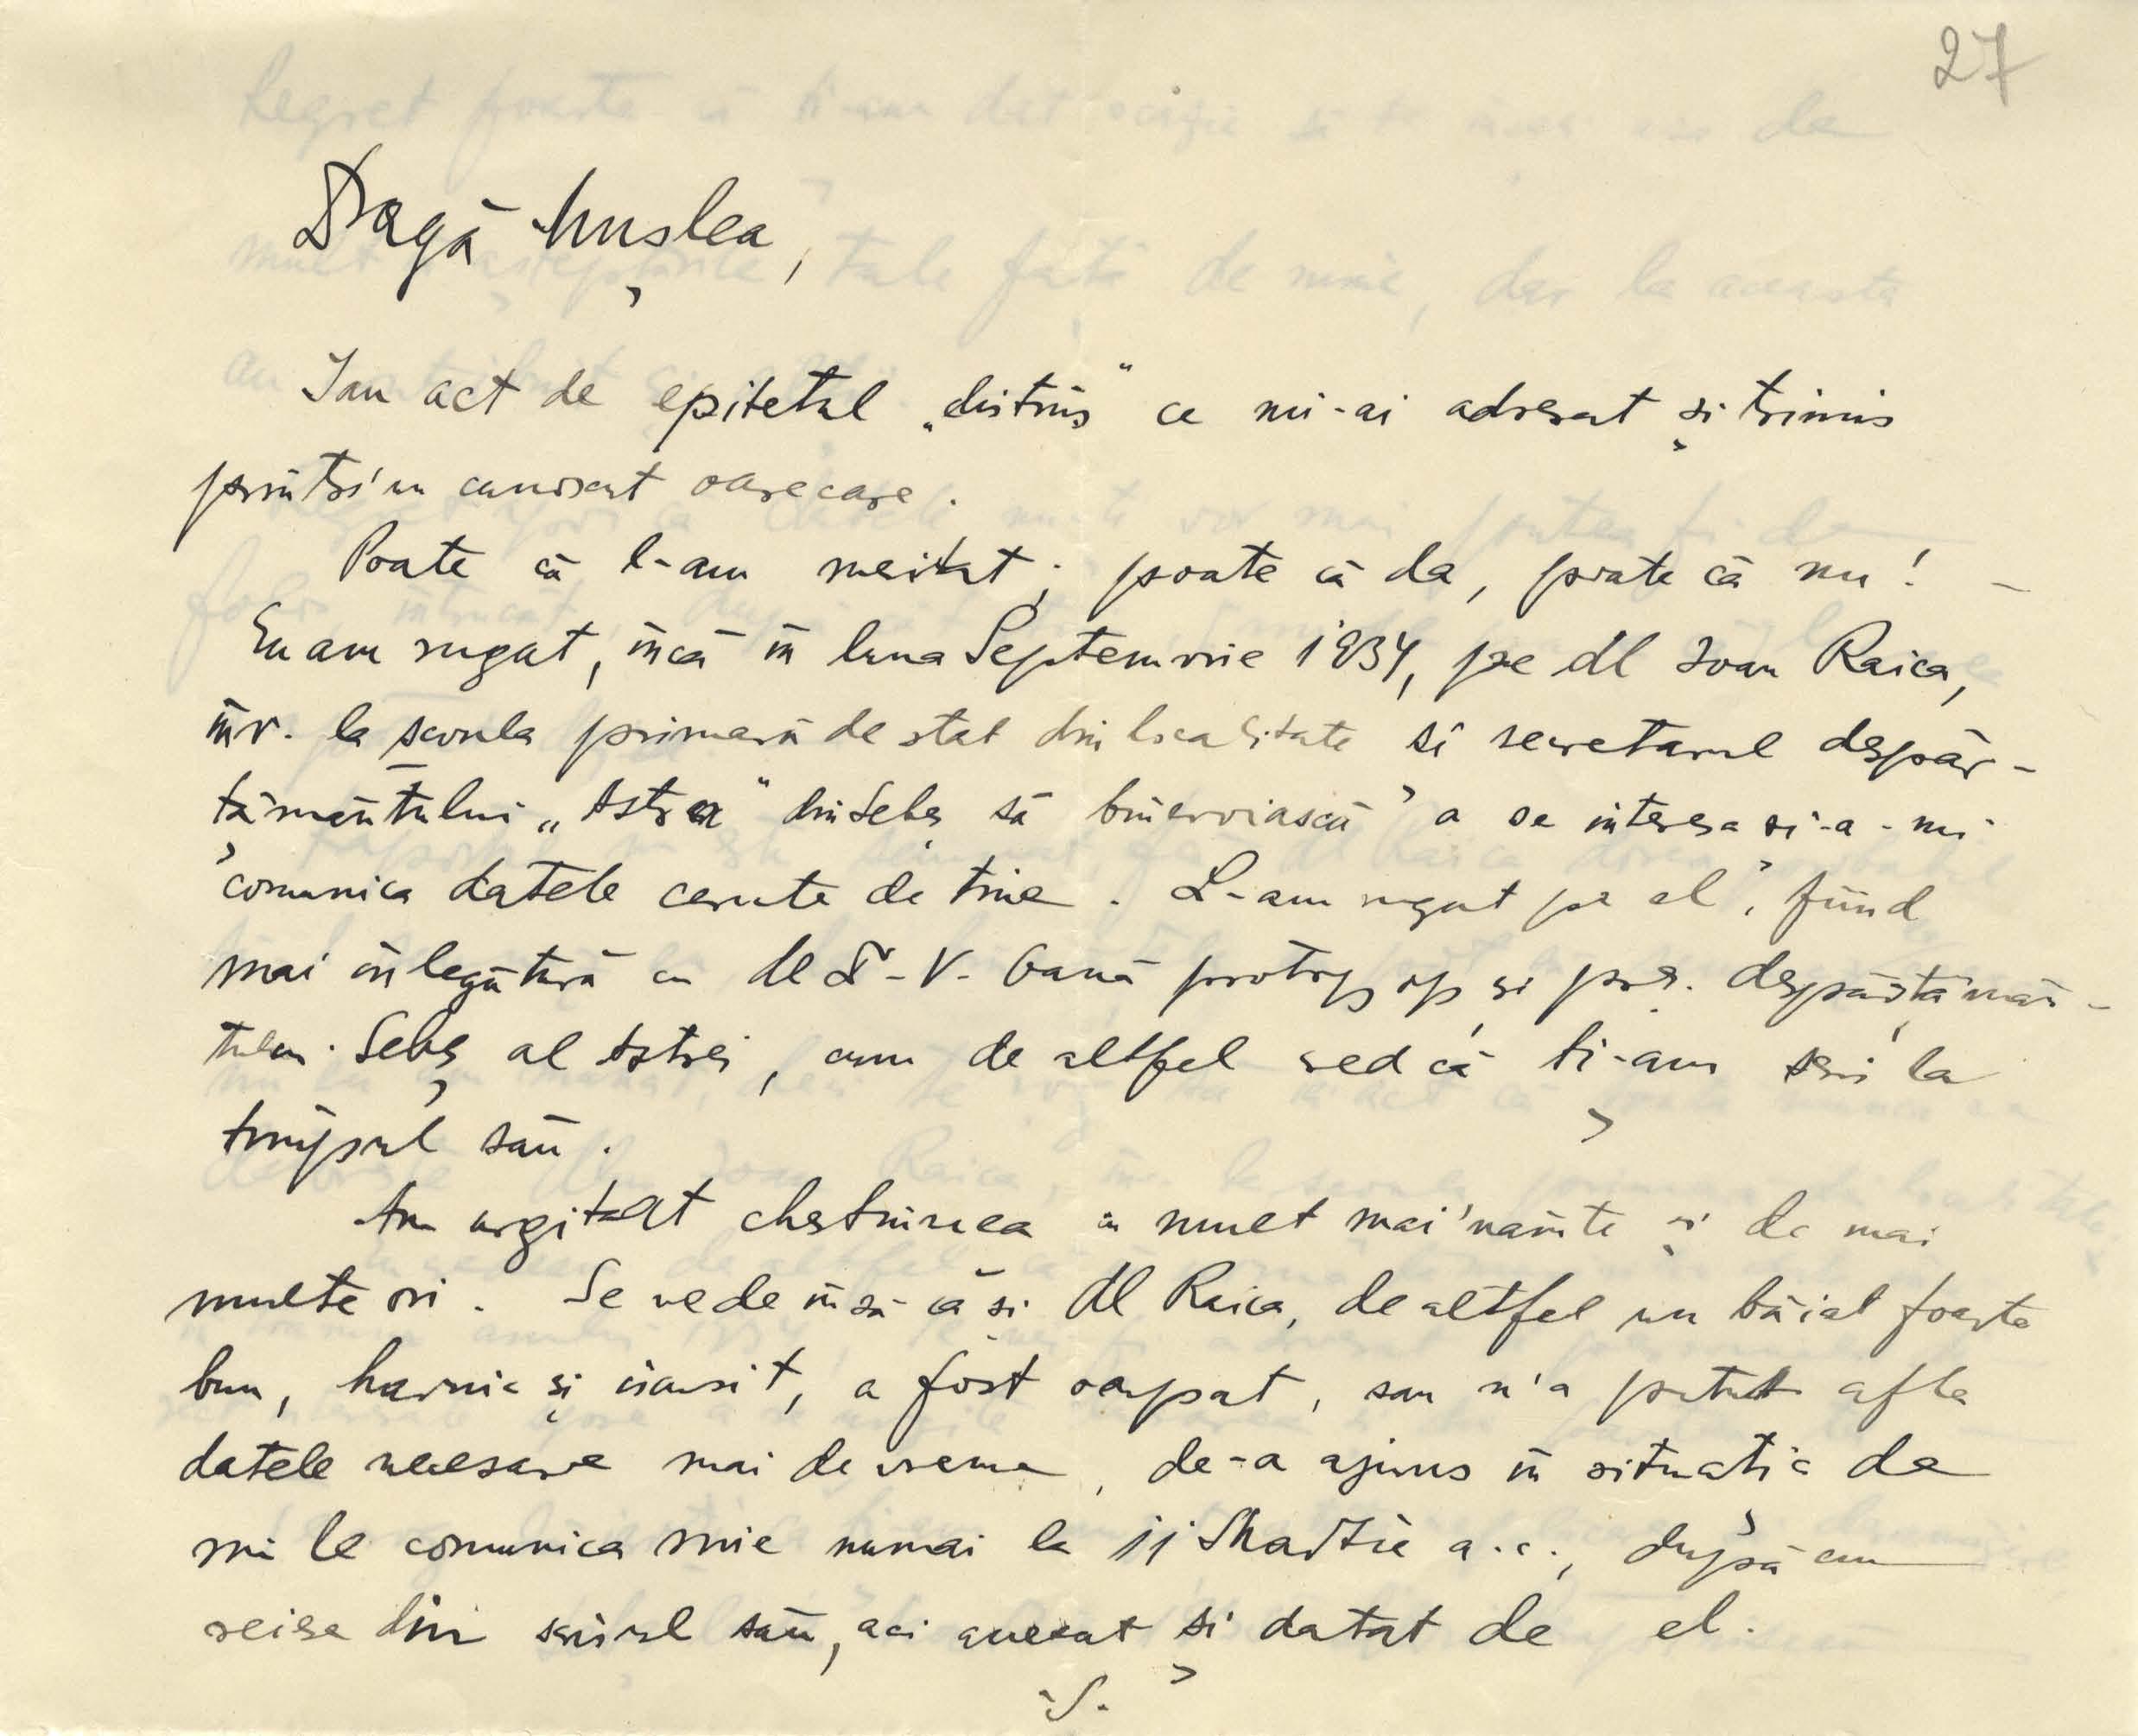 27
Dragă Muşlea,
Iau act de epitetul „distins" ce mi-ai adresat şi trimis
printr'un cunoscut oarecare.
Poate că l-am meritat; poate că da, poate că nu! –
Eu am rugat, încă în luna Septemvrie 1934, pe dl Ioan Raica,
înv. la şcoala primară de stat din localitate şi secretarul despăr-
ţămîntului „Astra" din Sebeş să binevoiască a se interesa şi-a-mi
comunica datele cerute de tine. L-am rugat pe el, fiind
mai în legătură cu dl S-V. Oană protopop şi pres. despărţămîn-
tului Sebeş al Astrei, cum de altfel cred că ţi-am scris la
timpul său.
Am urgitat chestiunea cu mult mai 'nainte şi de mai
multe ori. Se vede însă că şi dl Raica, de altfel un băiat foarte
bun, harnic şi isusit, a fost ocupat, sau n'a putut afla
datele necesare mai de vreme, de-a ajuns în situaţia de
mi le comunica mie numai la 11 Martie a.c., după cum
reiese din scrisul său, aci anexat şi datat de el.